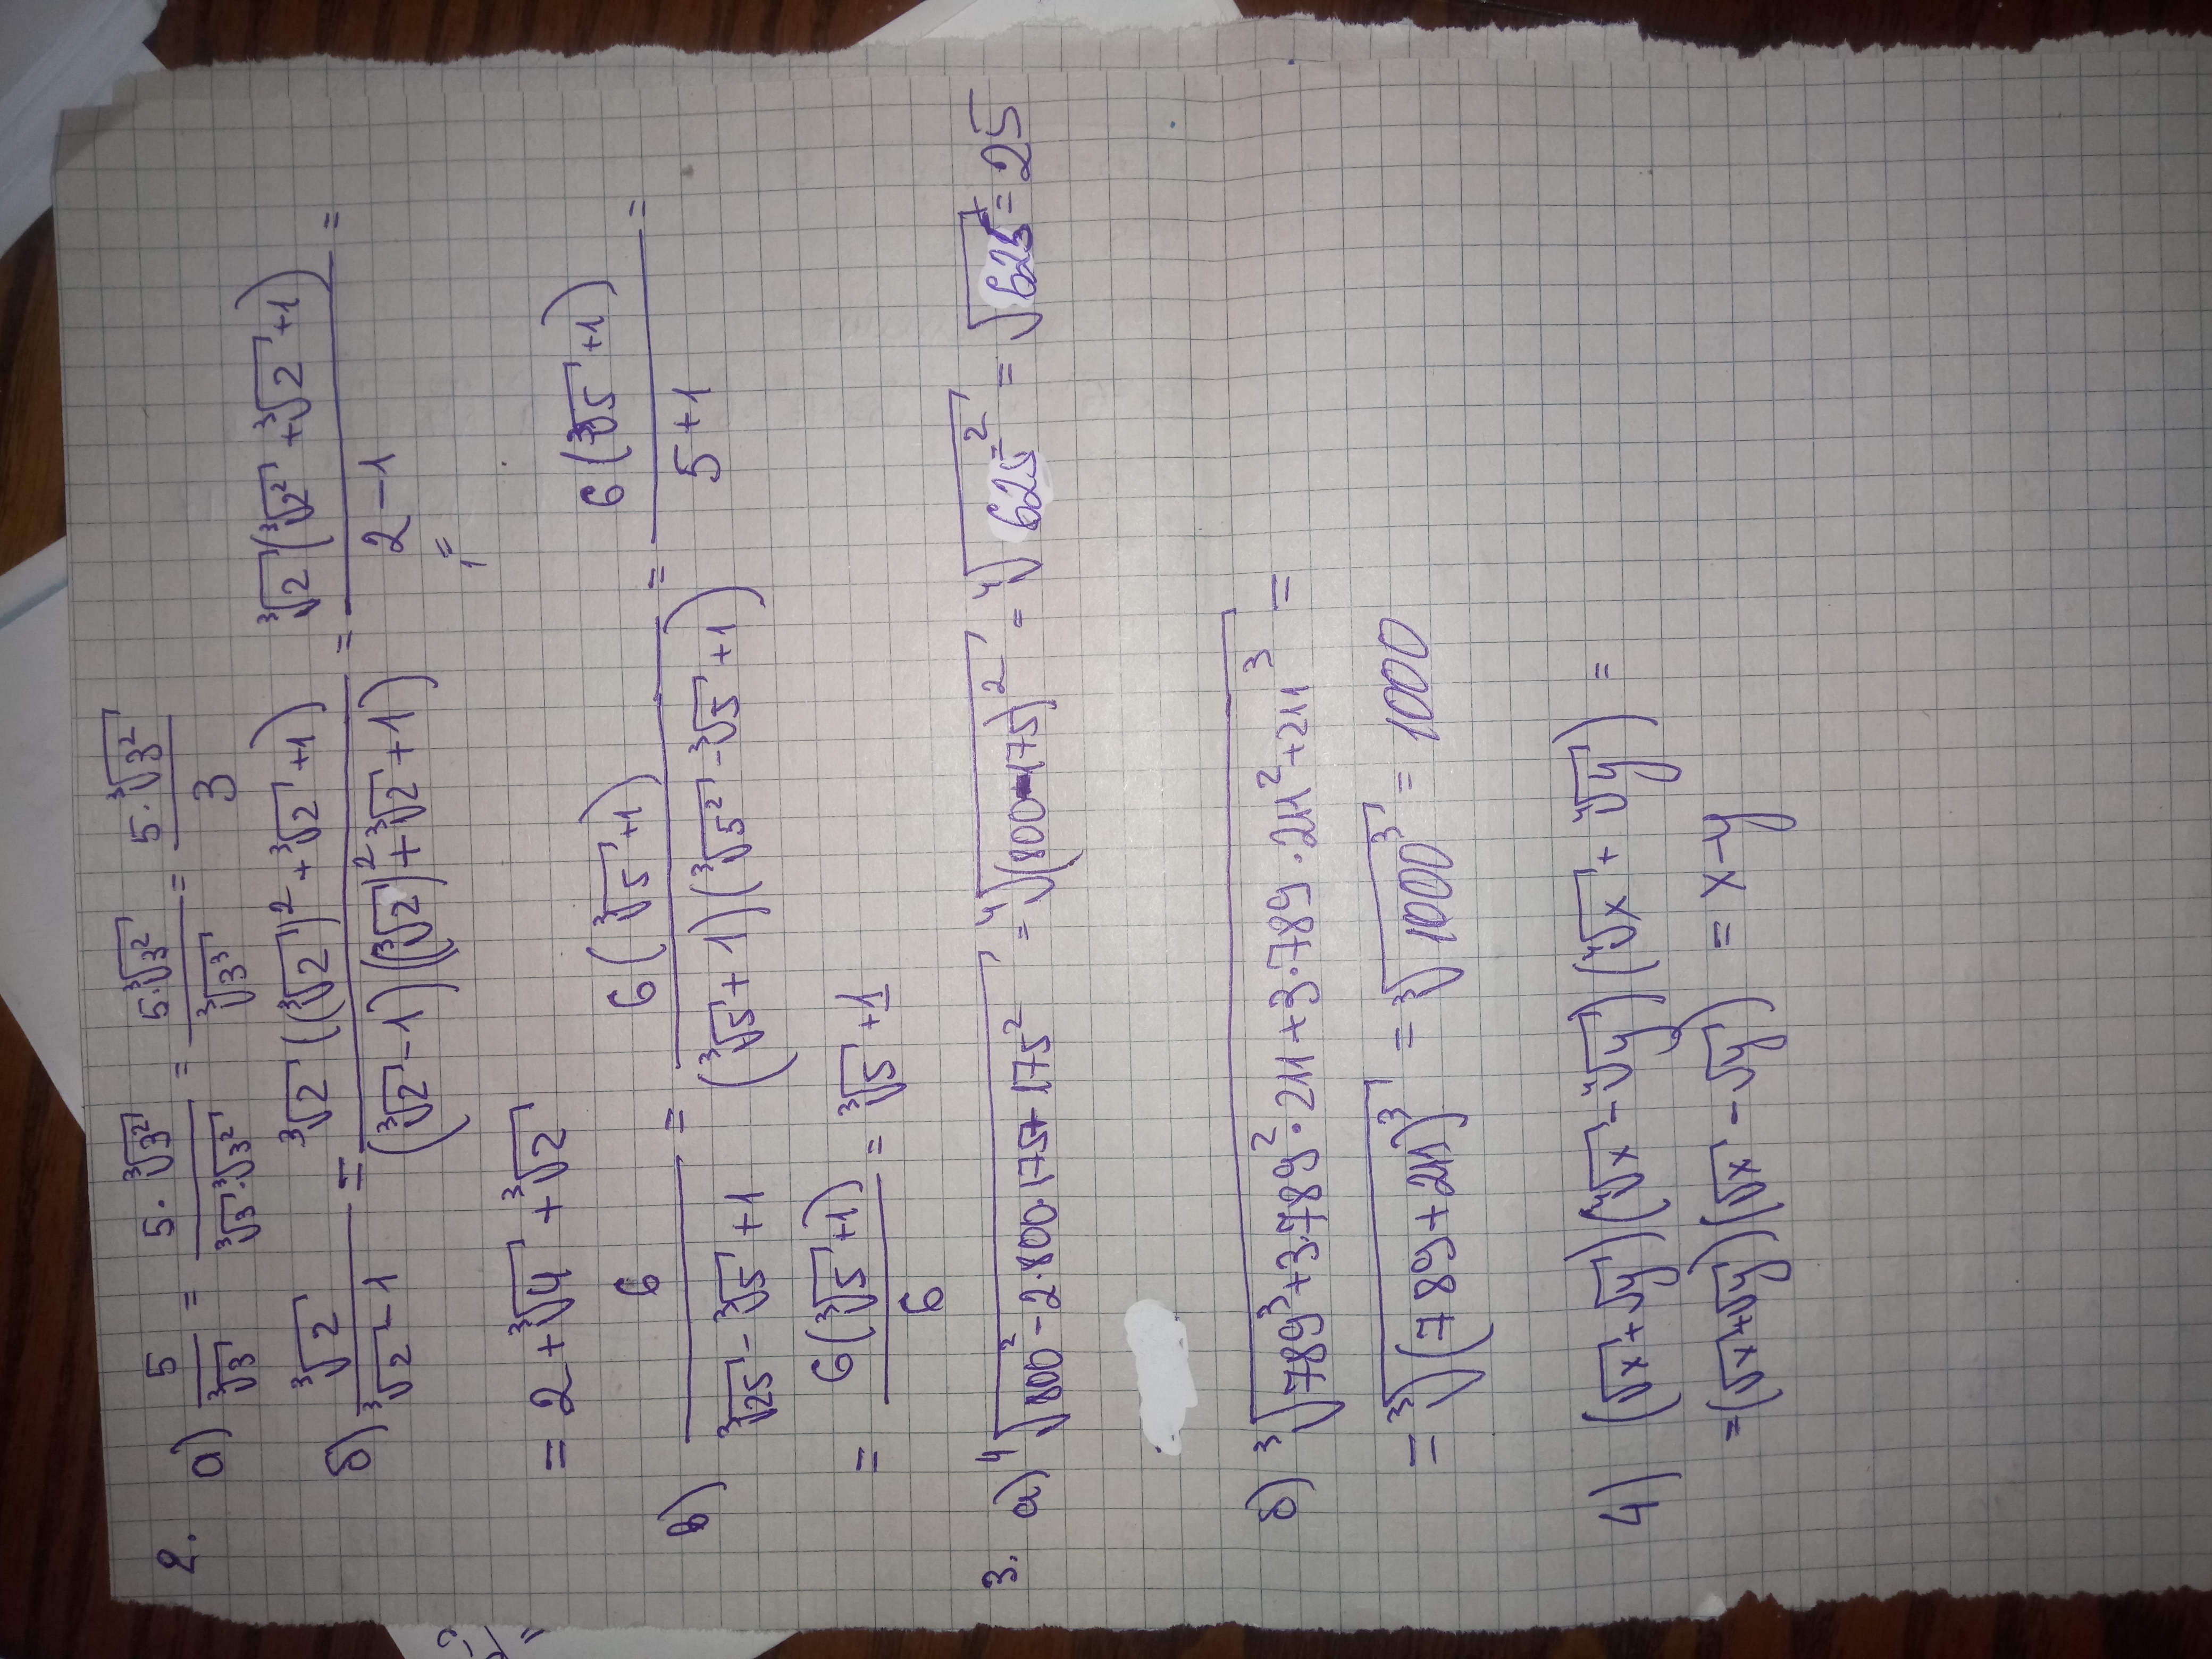 2. а) 5/∛3 = 5·∛3²/∛3·∛3² = 5·∛3²/∛3³ = 5·∛3²/3
б) ∛2/(∛2-1) = ∛2((∛2)²+∛2+1)/((∛2-1)((∛2)²+∛2+1)) = ∛2(∛2²+∛2+1)/(2-1) =
= 2+∛4+∛2
в) 6/(∛25-∛5+1) = 6(∛5+1)/((∛5+1)(∛5²-∛5+1)) = 6(∛5+1)/(5+1) =
= 6(∛5+1)/6 = ∛5+1
3. а) ∜(800²-2·800·175+175²) = ∜((800-175)²) = ∜(625²) = √625 = 25
б) ∛(789³+3·789²·211+3·789·211²+211³) =
= ∛((789+211)³) = ∛(1000³) = 1000
4) (√x+√y)(∜x-∜y)(∜x+∜y) =
=(√x+√y)(√x-√y) = x-y